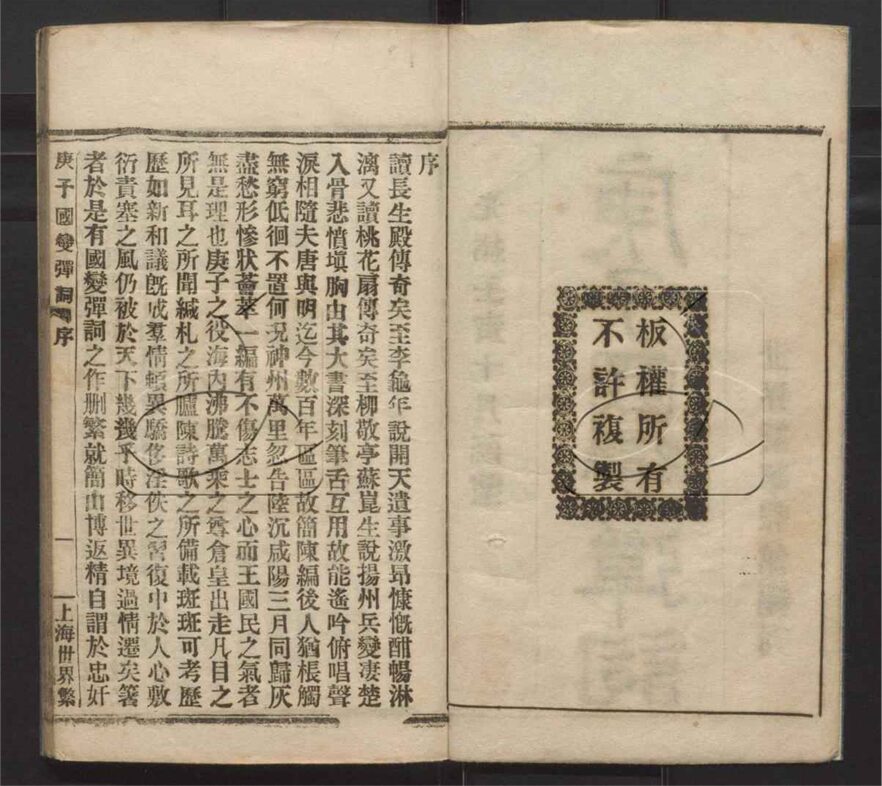 板權所有
不許複製
序
讀長生殿傳奇矣至李龜年說開天遺事激昂慷慨酣暢淋
漓又讀桃花扇傳奇矣至柳敬亭蘇崑生說揚州兵變凄楚
入骨悲憤塡胸由其大書深刻筆舌互用故能遙吟俯唱聲
淚相隨夫唐與明迄今數百年區區故簡陳編後人猶棖觸
無窮低徊不置何况神州萬里忽告陸沉咸陽三月同歸灰
盡愁形慘狀薈萃一編有不傷志士之心而王國民之氣者
無是理也庚子之役海內沸騰萬乘之尊倉皇出走凡目之
所見耳之所聞緘札之所臚陳詩歌之所備載斑斑可考歷
歷如新和議旣成羣情頓異驕侈淫佚之習復中於人心敷
衍責塞之風仍被於天下幾幾乎時移世異境過情遷矣箸
者於是有國變彈詞之作删繁就簡由博返精自謂於忠奸
庚子國變彈詞 序
一
上海世界繁